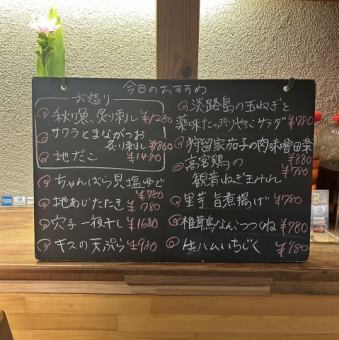 今日のおすすめ
お造り
秋刀魚、炙り刺し ¥1280
サワラとまながつお
炙り刺し ¥860
地だこ ¥1480
ちゃんばら貝塩ゆで
¥780
地あじたたき ¥780
穴子一夜干し ¥1680
キスの天ぷら ¥980
淡路島の玉ねぎと
薬味たっぷりサラダ ¥780
狩留家茄子の肉味噌田楽
¥880
高宮鶏の
観音ねぎまみれ ¥780
里芋旨煮揚げ ¥780
雛鶏なんこつつくね ¥780
生ハムいちじく ¥780